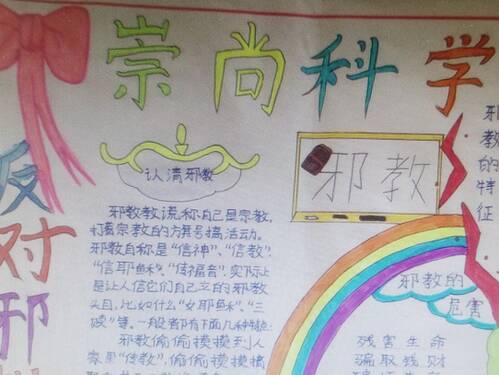 崇尚科学
反对邪
认清邪教
邪教教谎称自己是宗教,
打着宗教的方舞号搞活动。
邪教自称是"信神"、"信教"、
"信耶稣"、"传福音",实际上
是让人信它们自己立的邪教
头目,比如什么"女耶稣"、"三
赎"等。一般都有下面几种特征:
邪教偷偷摸摸到人
家里"传教",偷偷摸摸搞
邪教
邪
教
的
特
征
邪教的
危害
残害生命
骗取钱财